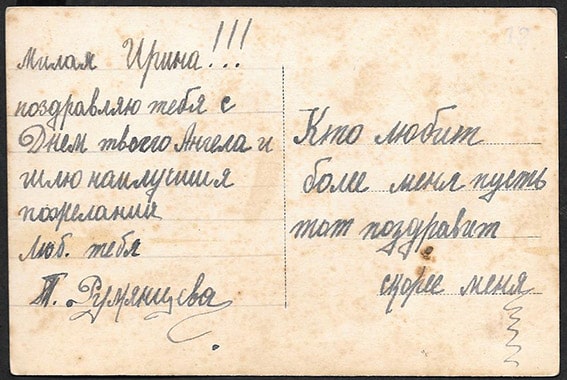 Милая Ирина!!!
поздравляю тебя с
Днем твоего Ангела и
шлю наилучшия
пожелания
Люб. тебя
Т. Румянцева
Кто любит
более меня пусть
тот поздравит
скорее меня